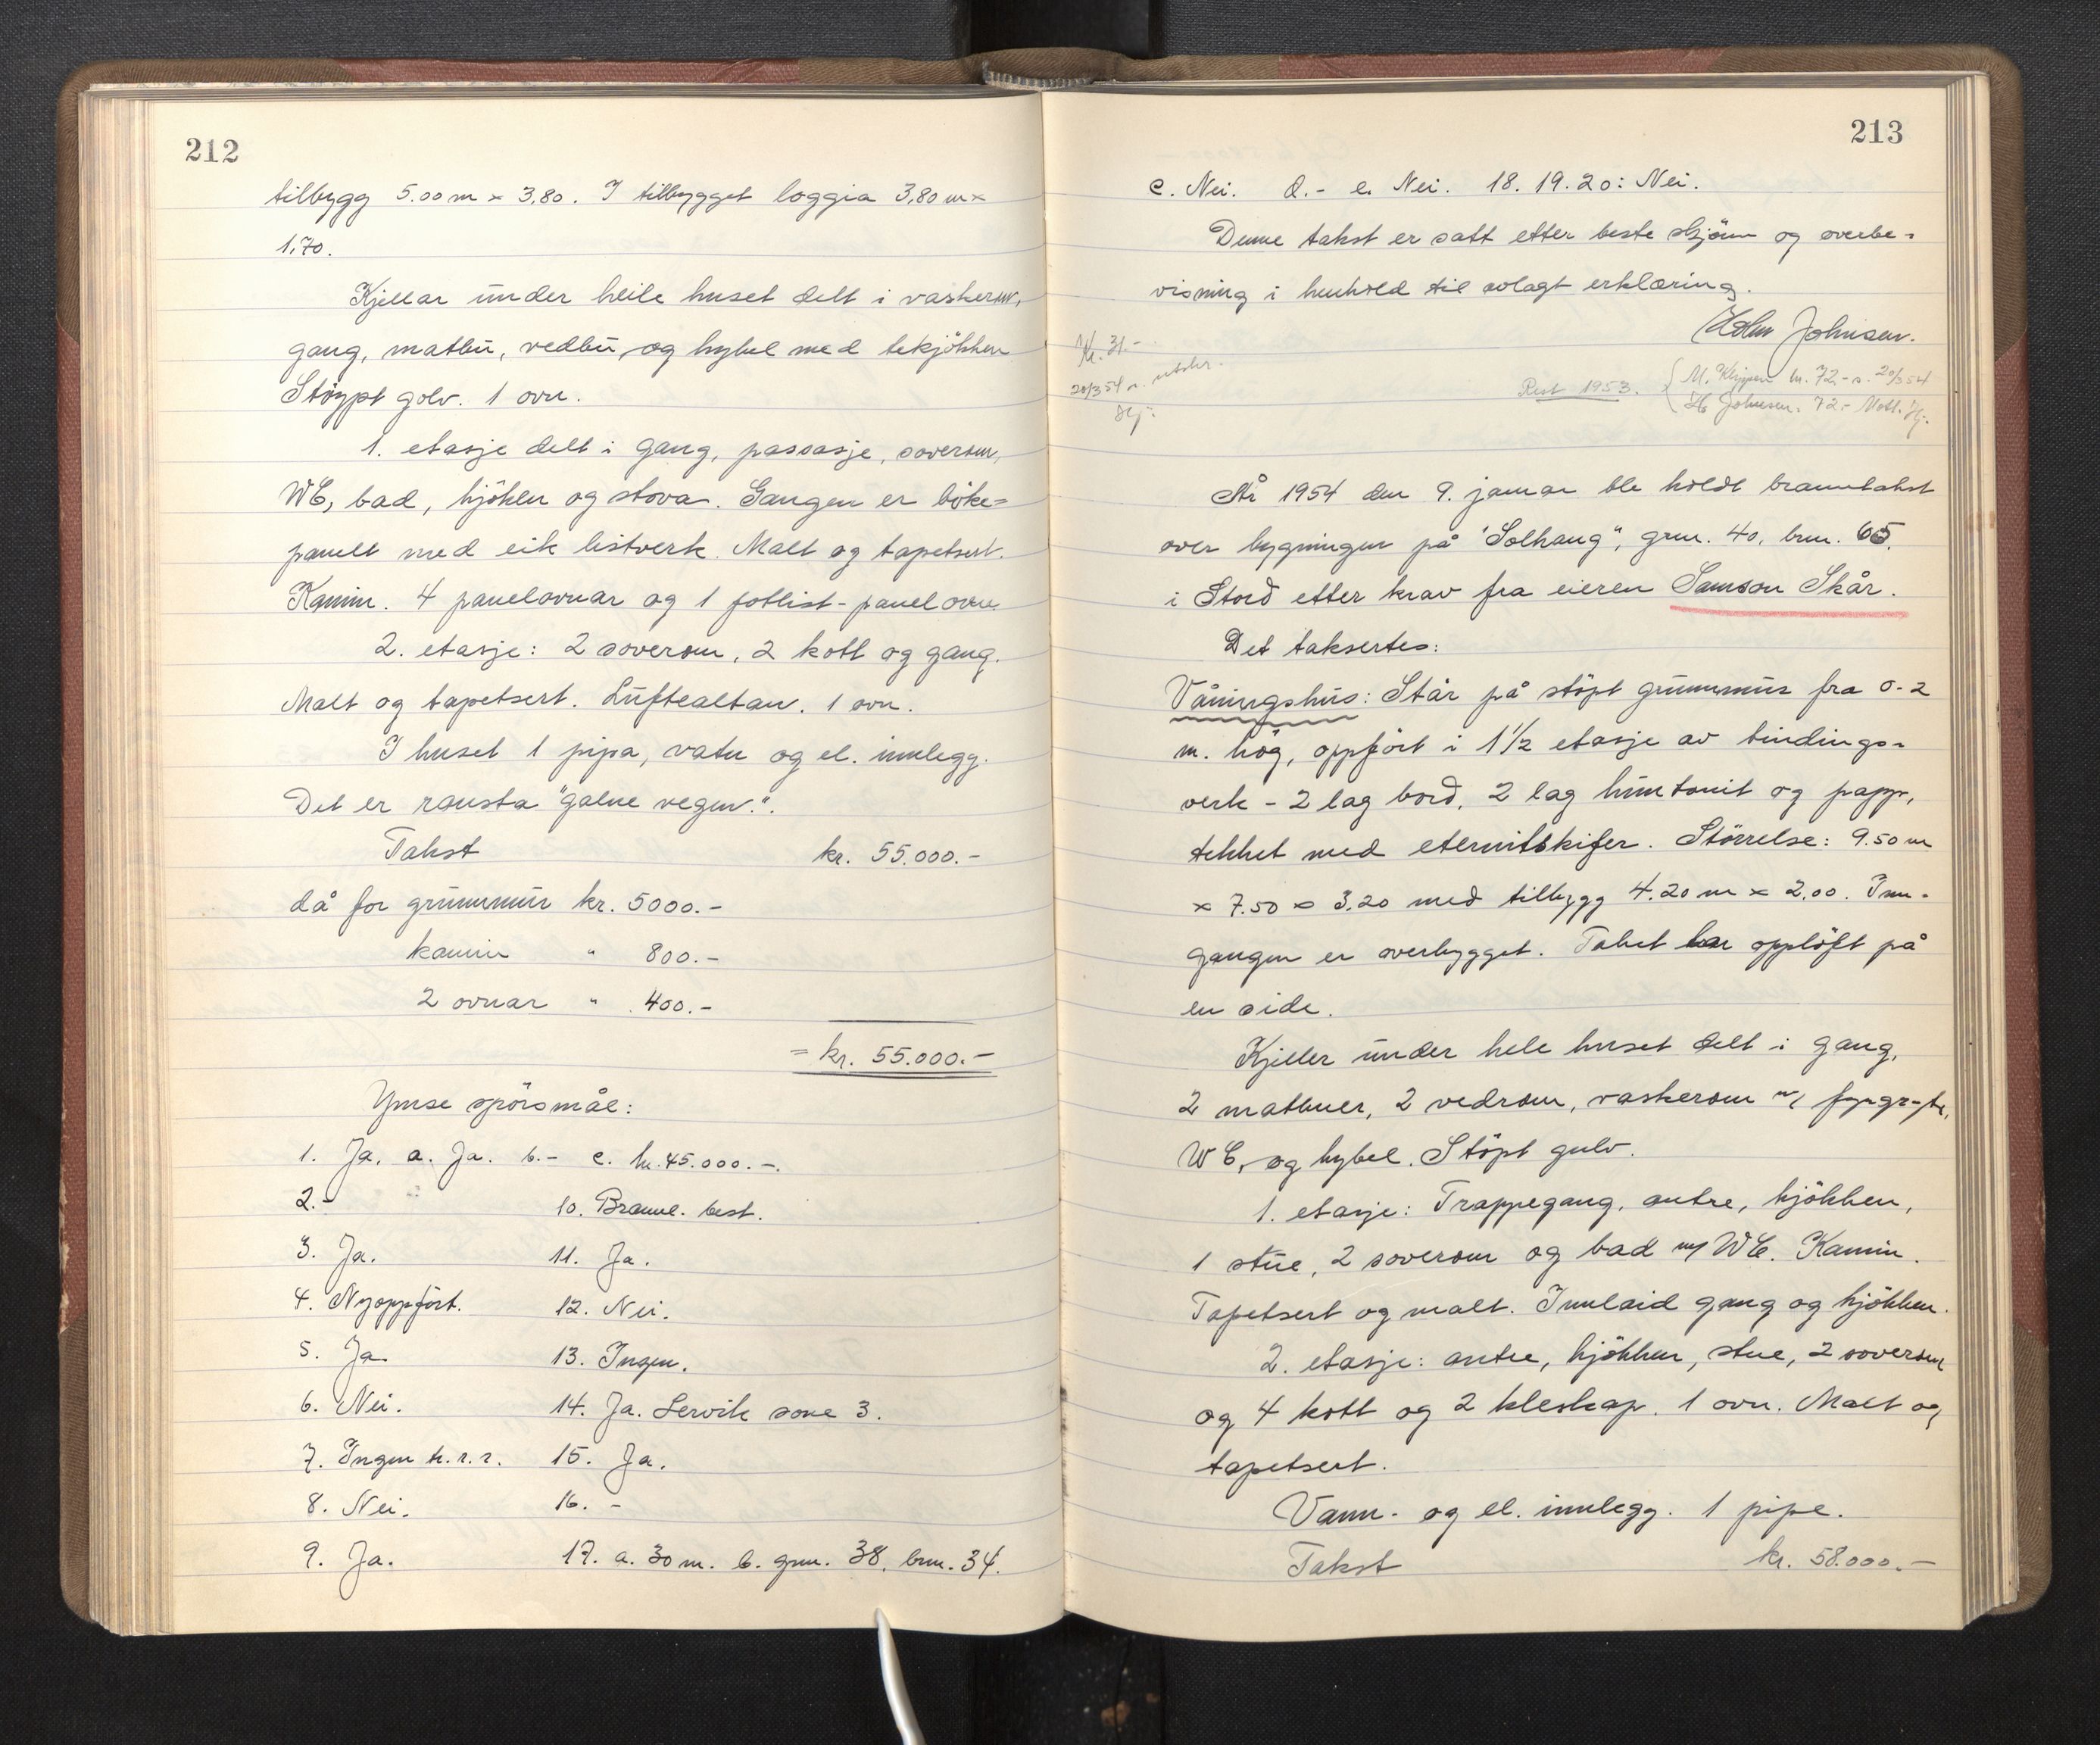 212
tilbygg 5.00 m × 3,80. I tilbygget loggia 3,80 m ×
1,70.
Kjellar under heile huset delt i vaskerom,
gang, matbu, vedbu, og hybel med tekjökken
Stöypt golv. 1 ovn.
1. etasje delt i gang, passasje, soverom,
WC, bad, kjöken og stova. Gangen er böke-
panelt med eik listverk. Malt og tapetsert.
Kamin. 4 panelovnar og 1 fotlist-panelovn
2. etasje: 2 soverom, 2 kott og gang.
Malt og tapetsert. Luftealtan. 1 ovn.
I huset 1 pipa, vatn og el. innlegg.
Det er rausta "galne vegen."
Takst kr. 55.000.-
då for grunnmur kr. 5000.-
kamin " 800.-
2 ovnar " 400.-
= kr. 55.000.-
Ymse spörsmål:
1. Ja. a. Ja. b.- c. kr. 45.000.-.
2.- 10. Brannl. best.
3. Ja. 11. Ja.
4. Nyoppfört. 12. Nei.
5. Ja. 13. Ingen.
6. Nei. 14. Ja. Lervik sone 3.
7. Ingen h.r.r. 15. Ja.
8. Nei. 16. -
9. Ja. 17. a. 30 m. b. gnr. 38, bnr. 34.
213
c. Nei. d.- e. Nei. 18. 19. 20: Nei.
Denne takst er satt etter beste skjönn og overbe-
visning i henhold til avlagt erklæring.
Johnsen.
Kr. 31.-
20/3 54 n. utskr.
Hj.
Rest 1953. { M. Klippen kr. 72.- s. 20/3 54
H. Johnsen. 72.- Mott. Hj.
År 1954 den 9. januar ble holdt branntakst
over bygningen på "Solhaug", gnr. 40, bnr. 65,
i Stord etter krav fra eieren Samson Skår.
Det taksertes:
Våningshus: Står på stöpt grunnmur fra 0-2
m. hög, oppfört i 1 1/2 etasje av bindings-
verk - 2 lag bord, 2 lag huntonit og papp,
tekket med eternitskifer. Störrelse: 9.50 m
× 7.50 × 3.20 med tilbygg 4.20 m × 2,00. Inn-
gangen er overbygget. Taket har opplöft på
en side.
Kjeller under hele huset delt i gang,
2 matbuer, 2 vedrom, vaskerom m/ fyrgryte,
WC, og hybel. Stöpt gulv.
1. etasje: Trappegang, entre, kjökken,
1 stue, 2 soverom og bad m/ WC. Kamin.
Tapetsert og malt. Innlaid gang og kjökken.
2. etasje: entre, kjökken, stue, 2 soverom
og 4 kott og 2 kleskap. 1 ovn. Malt og
tapetsert.
Vann- og el. innlegg. 1 pipe.
Takst kr. 58.000.-